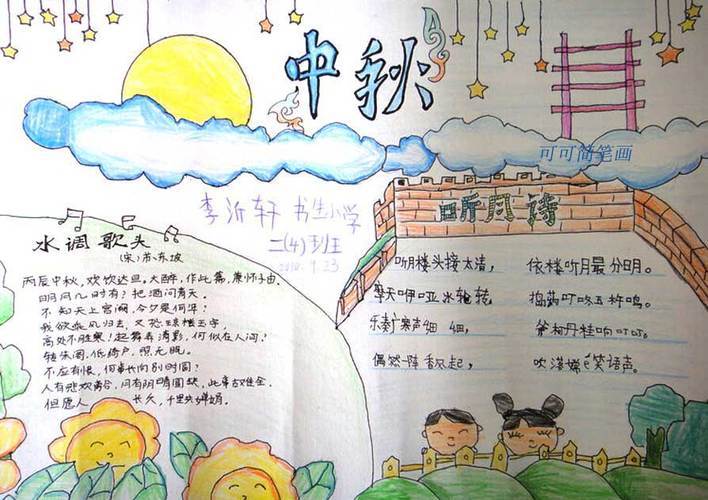 中秋
可可简笔画
李沂轩 书生小学
二(4)班
2010.9.23
水调歌头
(宋)苏东坡
丙辰中秋，欢饮达旦。大醉，作此篇，兼怀子由。
明月几时有？把酒问青天。
不知天上宫阙，今夕是何年？
我欲乘风归去，又恐琼楼玉宇，
高处不胜寒！起舞弄清影，何似在人间！
转朱阁，低绮户，照无眠。
不应有恨，何事长向别时圆？
人有悲欢离合，月有阴晴圆缺，此事古难全。
但愿人 长久，千里共婵娟。
听月诗
听楼头接太清， 依楼听月最分明。
摩天咿哑冰轮转， 捣药叮咚玉杵鸣。
乐奏广寒声细 细， 斧柯丹桂响叮叮。
偶然阵香风起， 吹落嫦娥笑语声。